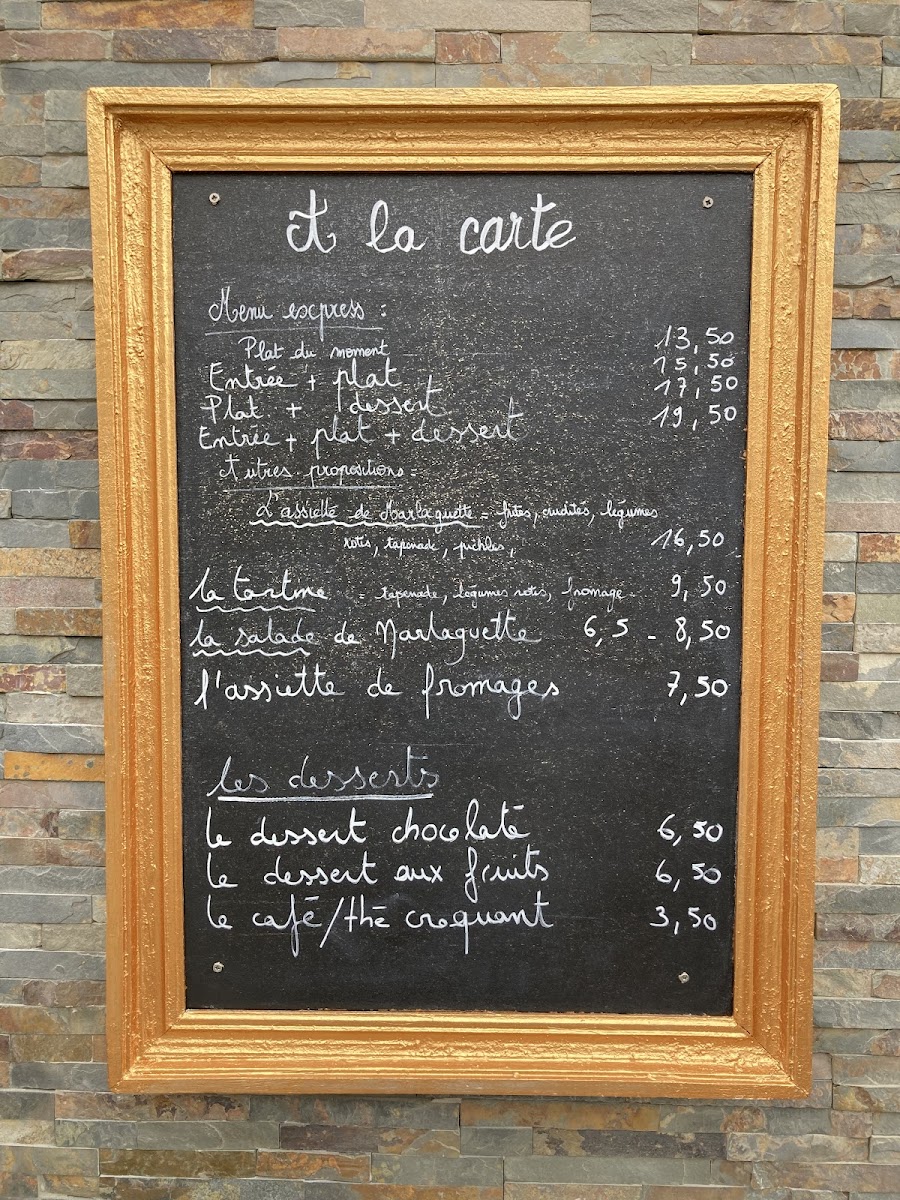 A la carte
Menu express :
Plat du moment 13,50
Entrée + plat 15,50
Plat + dessert 17,50
Entrée + plat + dessert 19,50
Autres propositions :
L'assiette de Marlaguette = frites, crudités, légumes
rotis, tapenade, pickles, 16,50
la tartine = tapenade, légumes rotis, fromage. 9,50
la salade de Marlaguette 6,5 - 8,50
l'assiette de fromages 7,50
les desserts
le dessert chocolaté 6,50
le dessert aux fruits 6,50
le café/thé croquant 3,50